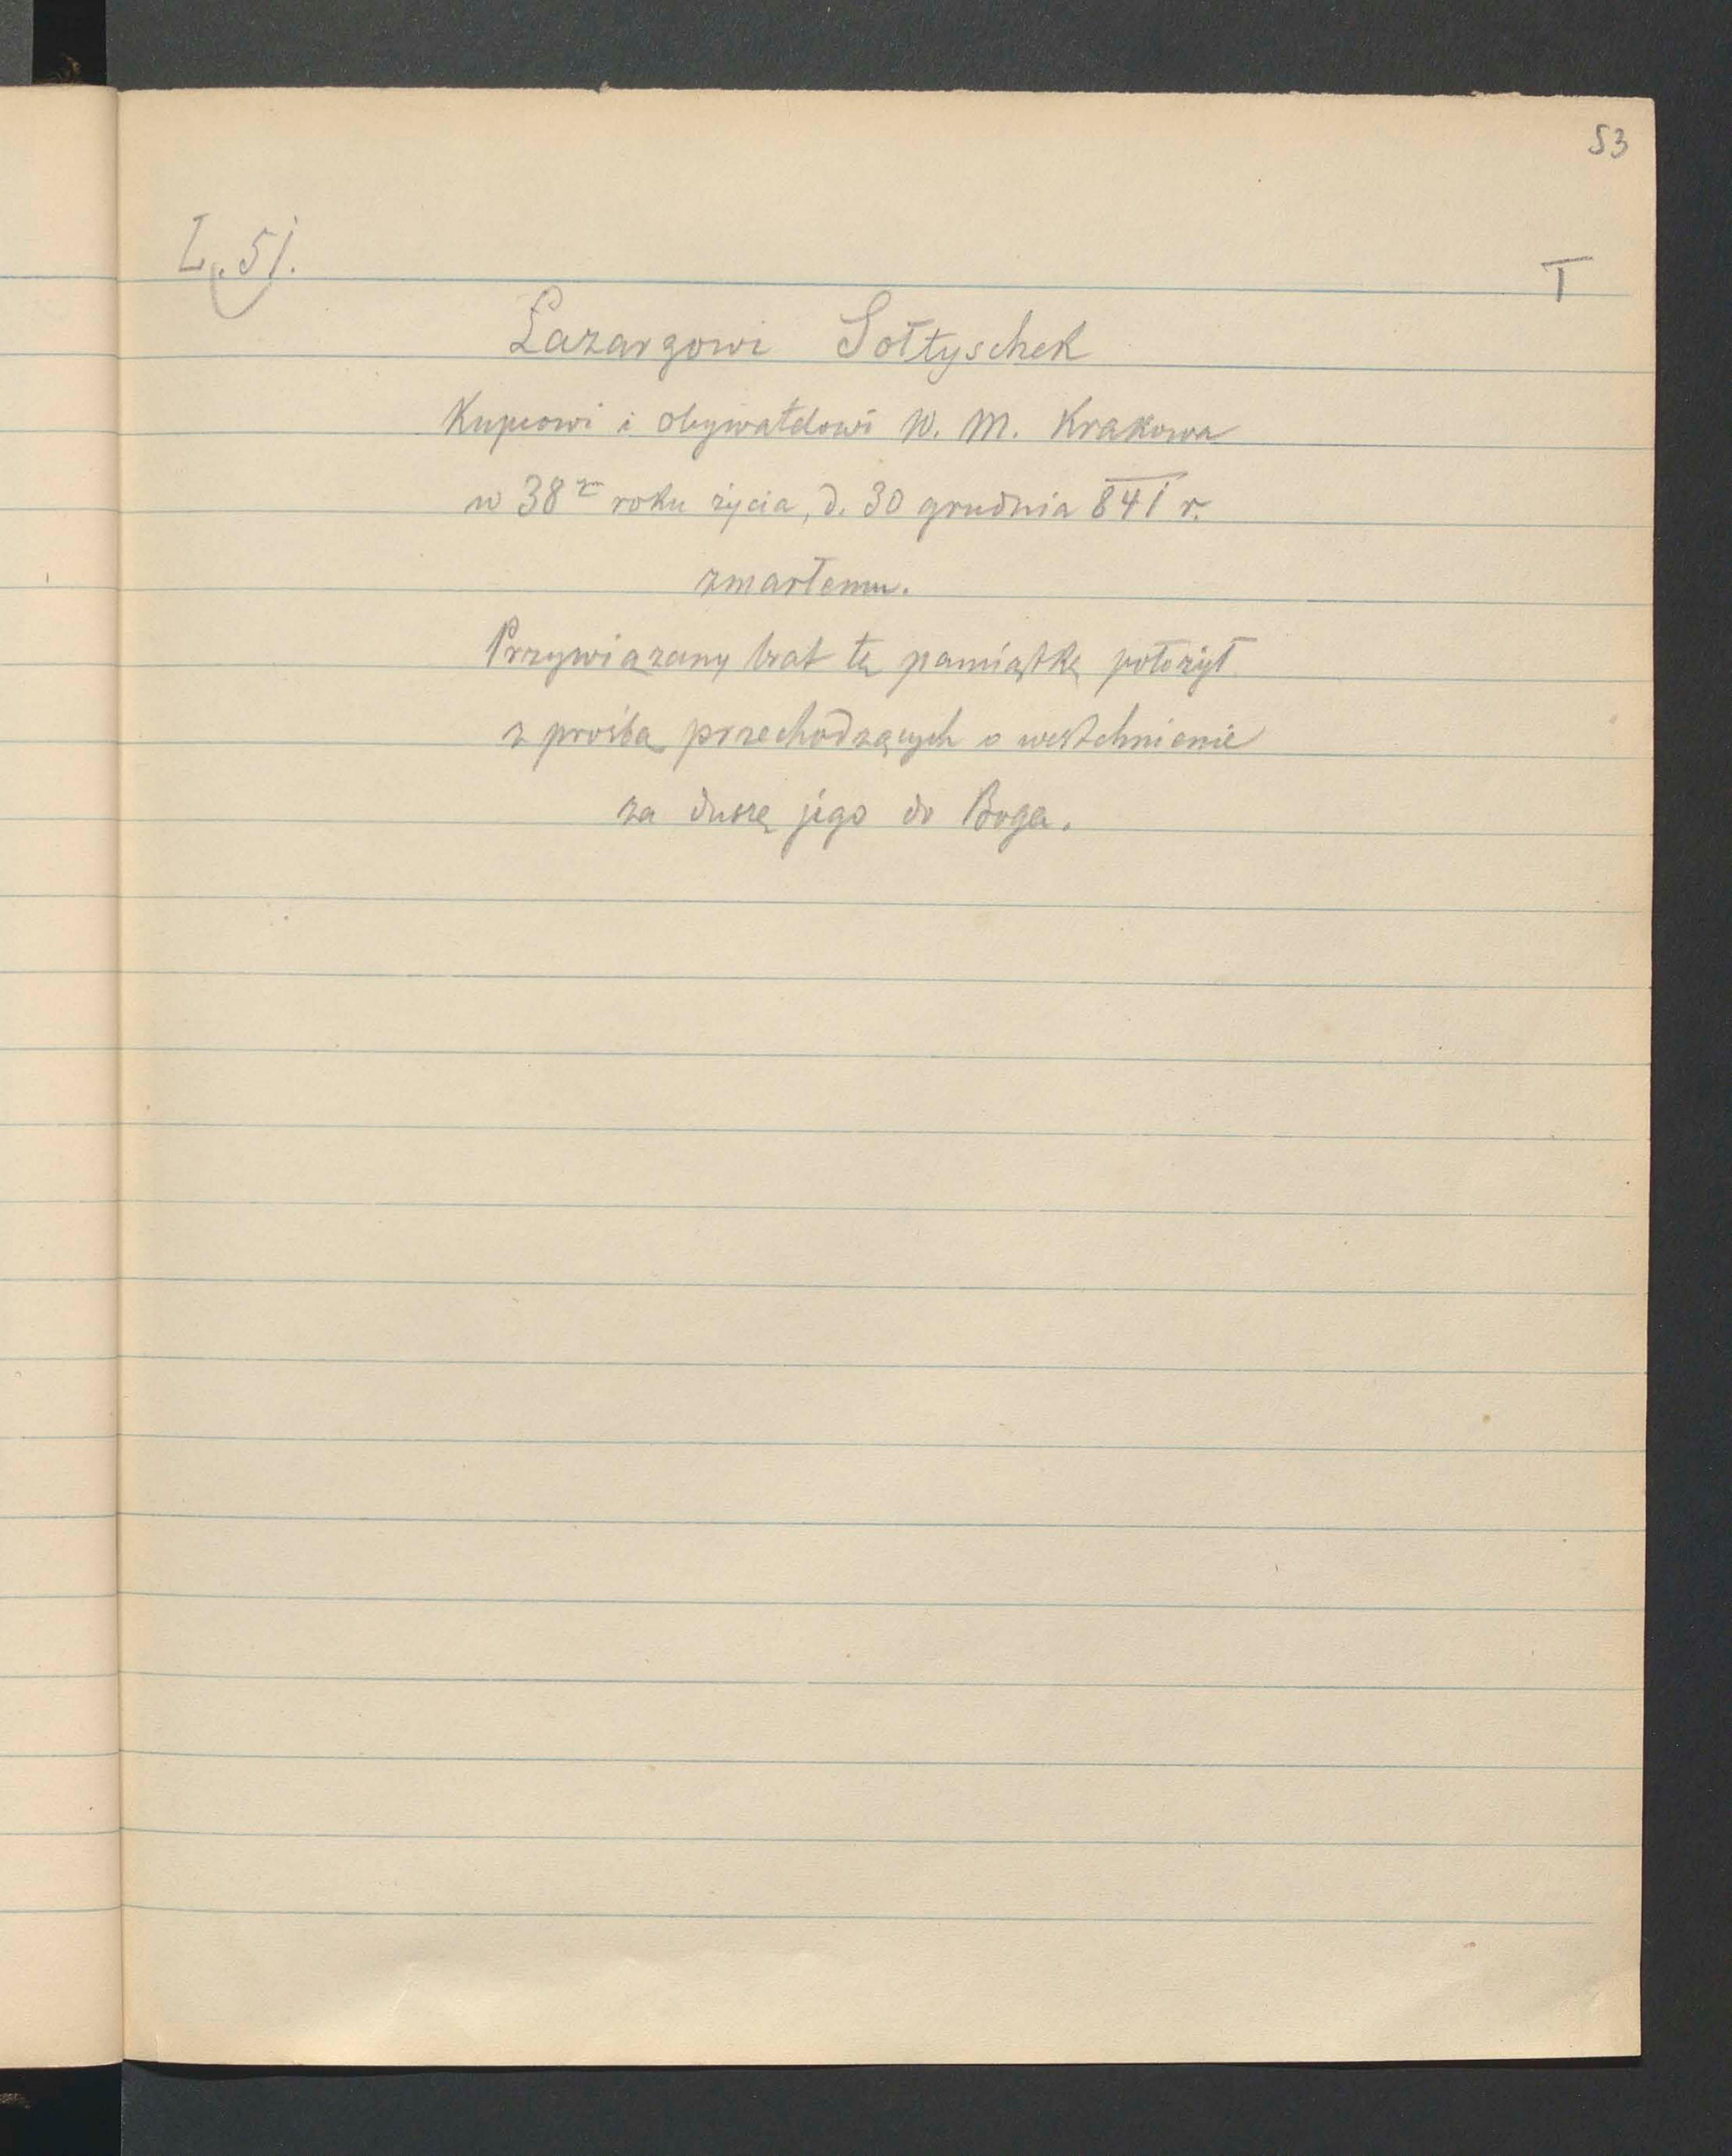 53
L. 51.
T
Łazarzowi Sołtyschek
Kupcowi i obywatelowi W. M. Krakowa
w 38m roku życia, d. 30 grudnia 841 r.
zmarłemu.
Przywiązany brat tę pamiątkę położył
z prośbą przechodzących o westchnienie
za duszę jego do Boga.